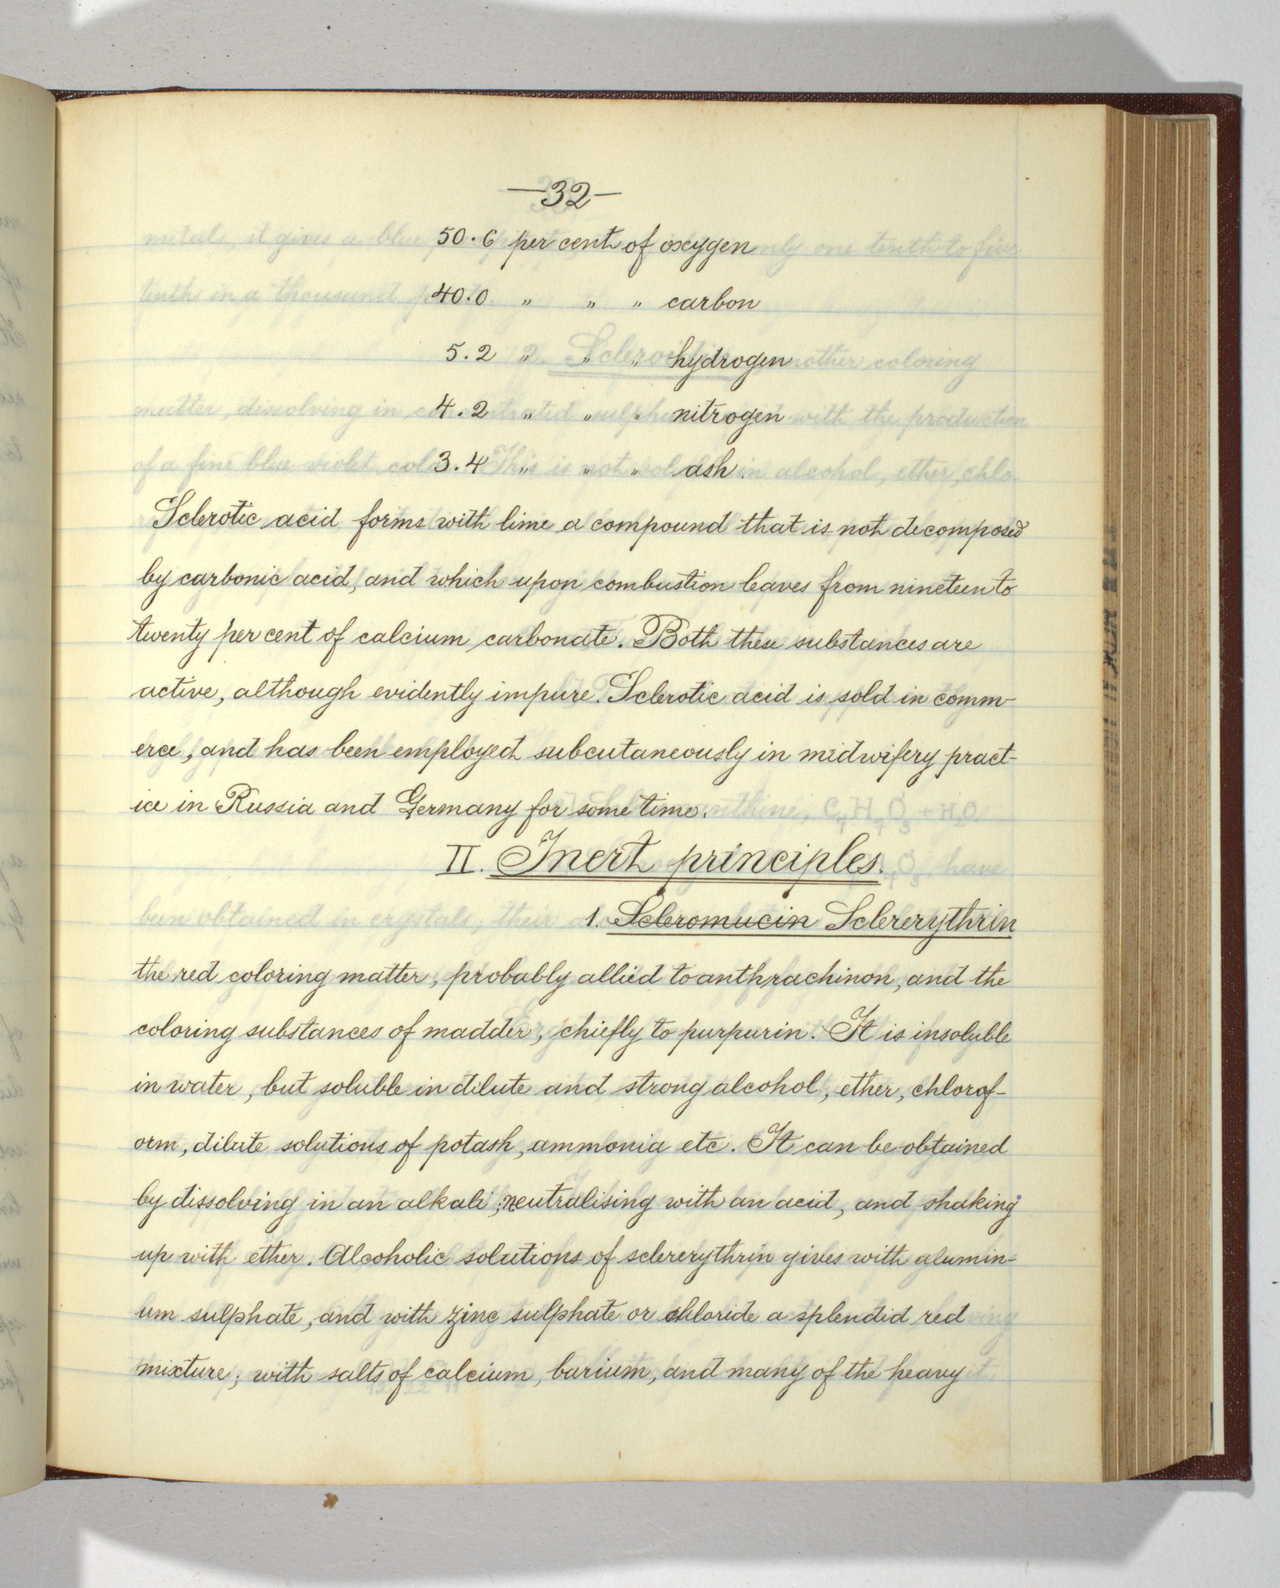 —32—
50.6 per cent of oxygen
40.0 " " " carbon
5.2 " " " hydrogen
4.2 " " " nitrogen
3.4 " " " ash.
Sclerotic acid forms with lime a compound that is not decomposed
by carbonic acid, and which upon combustion leaves from nineteen to
twenty per cent of calcium carbonate. Both these substances are
active, although evidently impure. Sclerotic acid is sold in comm-
erce, and has been employed subcutaneously in midwifery pract-
ice in Russia and Germany for some time.
II. Inert principles.
1. Scleromucin Sclererythrin
the red coloring matter, probably allied to anthrachinon, and the
coloring substances of madder, chiefly to purpurin. It is insoluble
in water, but soluble in dilute and strong alcohol, ether, chlorof-
orm, dilute solutions of potash, ammonia etc. It can be obtained
by dissolving in an alkali, neutralising with an acid, and shaking
up with ether. Alcoholic solutions of sclererythrin gives with alumin-
um sulphate, and with zinc sulphate or chloride a splendid red
mixture; with salts of calcium, barium, and many of the heavy